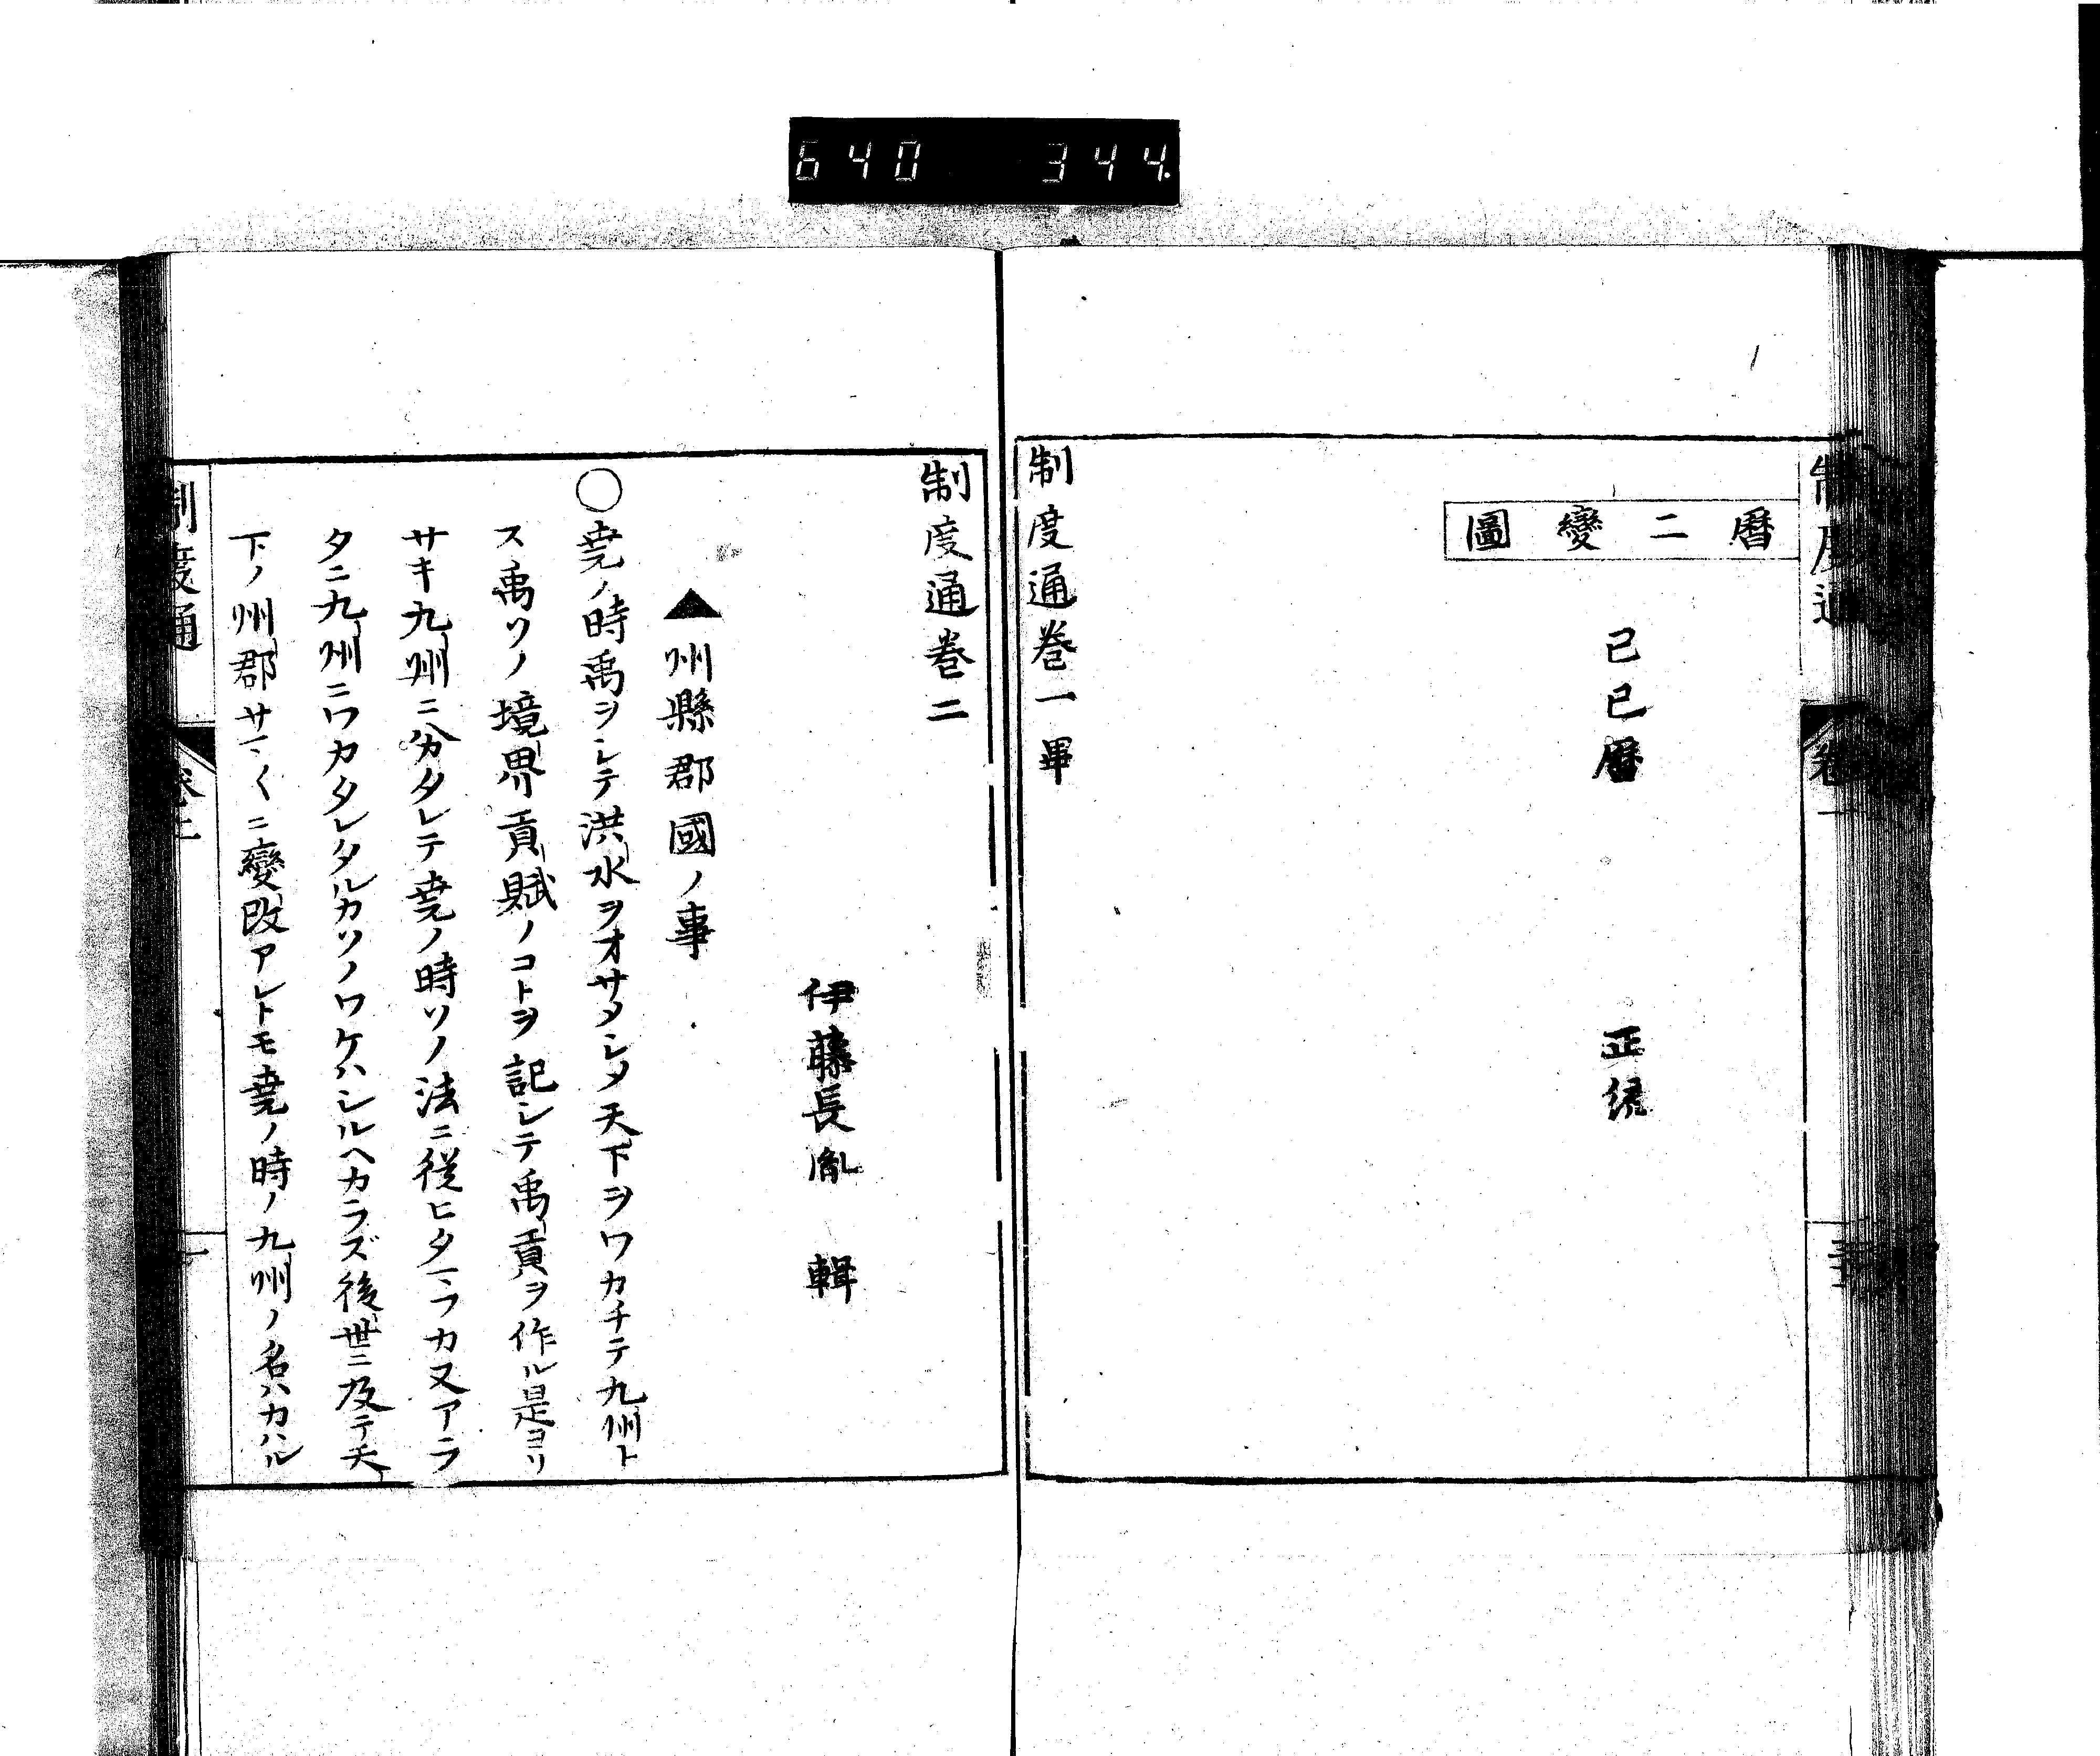 640 344.
制度通 卷一
曆二變圖
己巳曆
正德
制度通卷一畢
制度通卷二
伊藤長胤 輯
▲州縣郡國ノ事
○堯ノ時禹ヲシテ洪水ヲオサメシメ天下ヲワカチテ九州ト
ス禹ソノ境界貢賦ノコトヲ記シテ禹貢ヲ作ル是ヨリ
サキ九州ニ分タレテ堯ノ時ソノ法ニ從ヒタマフカ又アラ
タニ九州ニワカタレタルカソノワケハシルヘカラズ後世ニ及テ天
下ノ州郡サマ〱ニ變改アレトモ堯ノ時ノ九州ノ名ハカハル
制度通 卷二 一